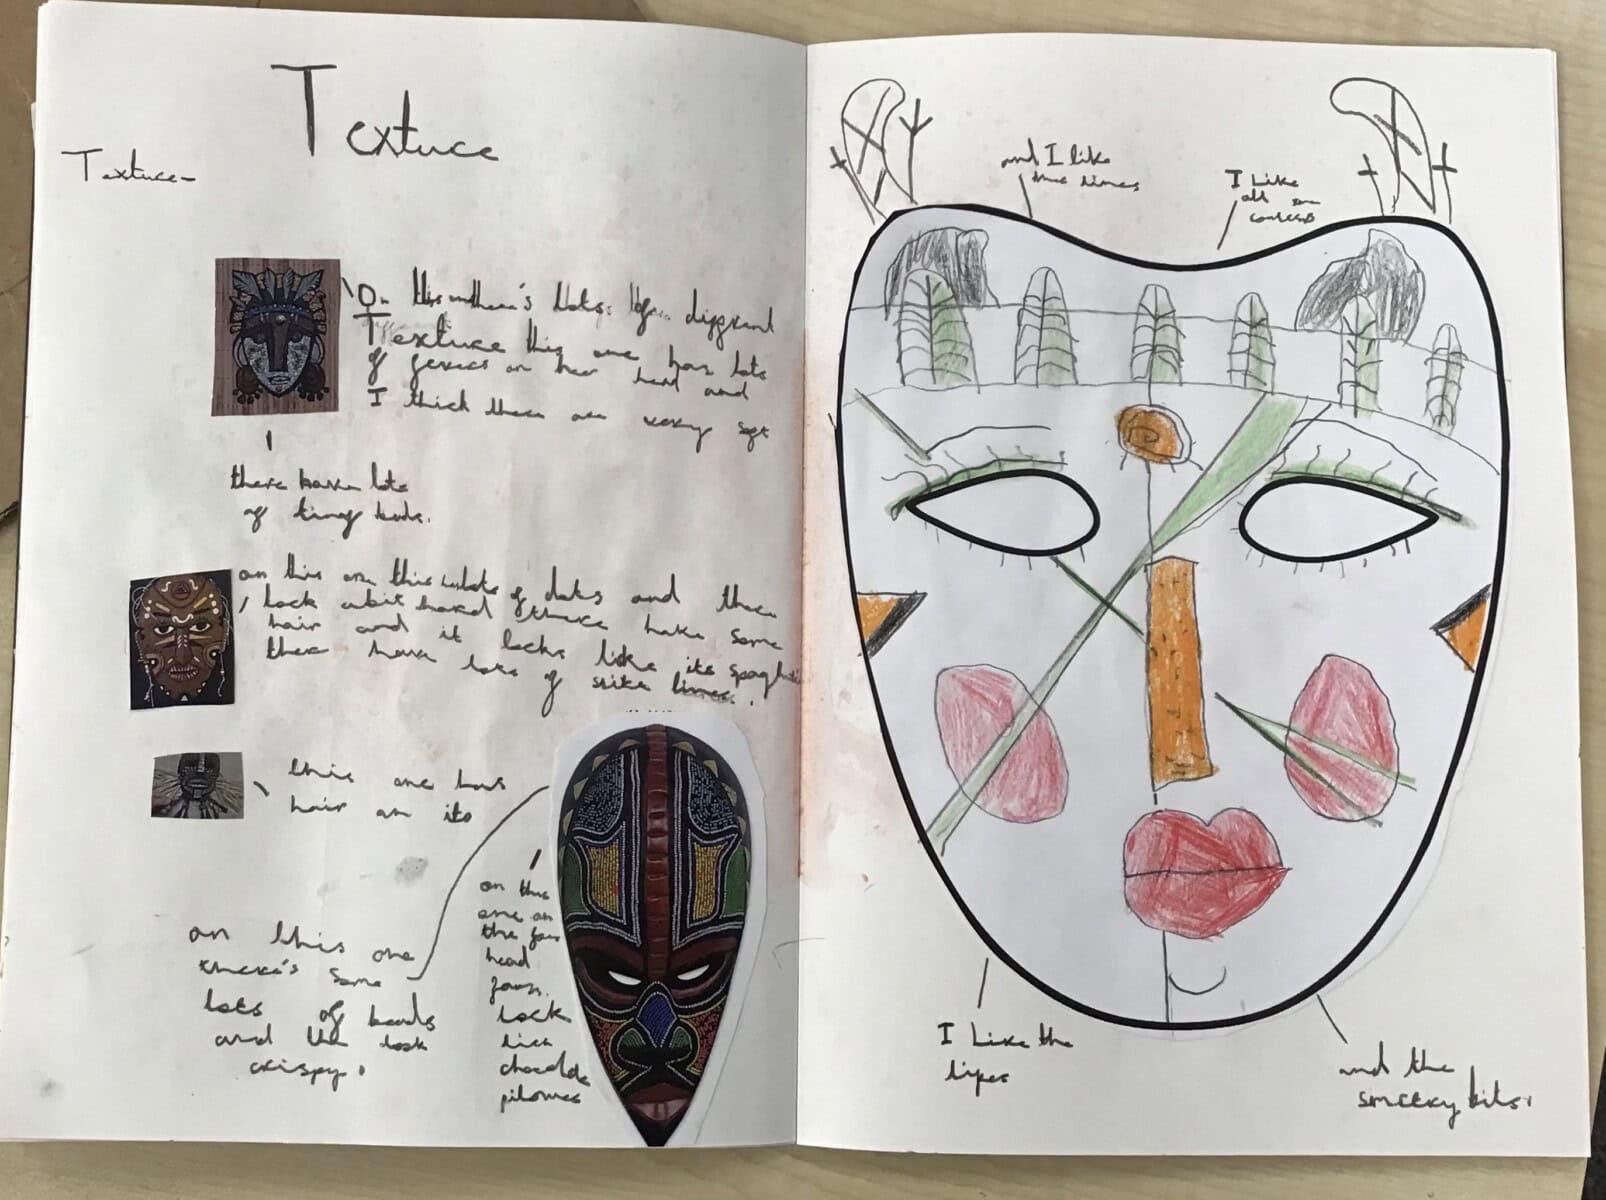 Texture
Texture-
On this on there's lots of different
Texture this one has lots
of fevers on her head and
I thick there are very sgt
there have lots
of tiny beds.
on this on this is lots of dots and there
look abit hared there have some
hair and it locks like its spaghetti
there have lots of stike lines.
this one has
hair on its
on this one
there's some
lots of beads
and the look
crispy.
on this
one on
the four
head
look
like
chocolate
and I like
the lines
I Like
all
I Like the
lipes
and the
smeeky bits.